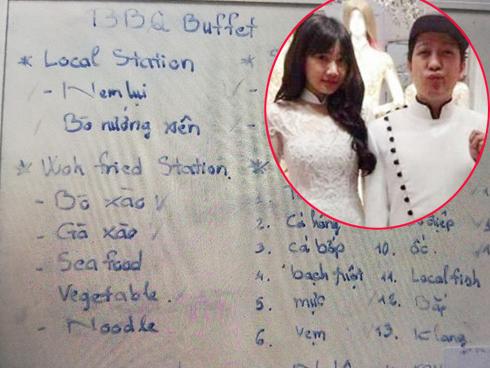 BBQ Buffet
* Local Station
- Nem lụi
Bò nướng xiên
* Wok fried Station
- Bò xào
- Gà xào
- Sea food
Vegetable
- Noodle
2. Cá hồng
3. cá bớp 10. ốc
4. bạch tuột 11. Local fish
5. mực 12. Bắp
6. Vẹm 13. K lang